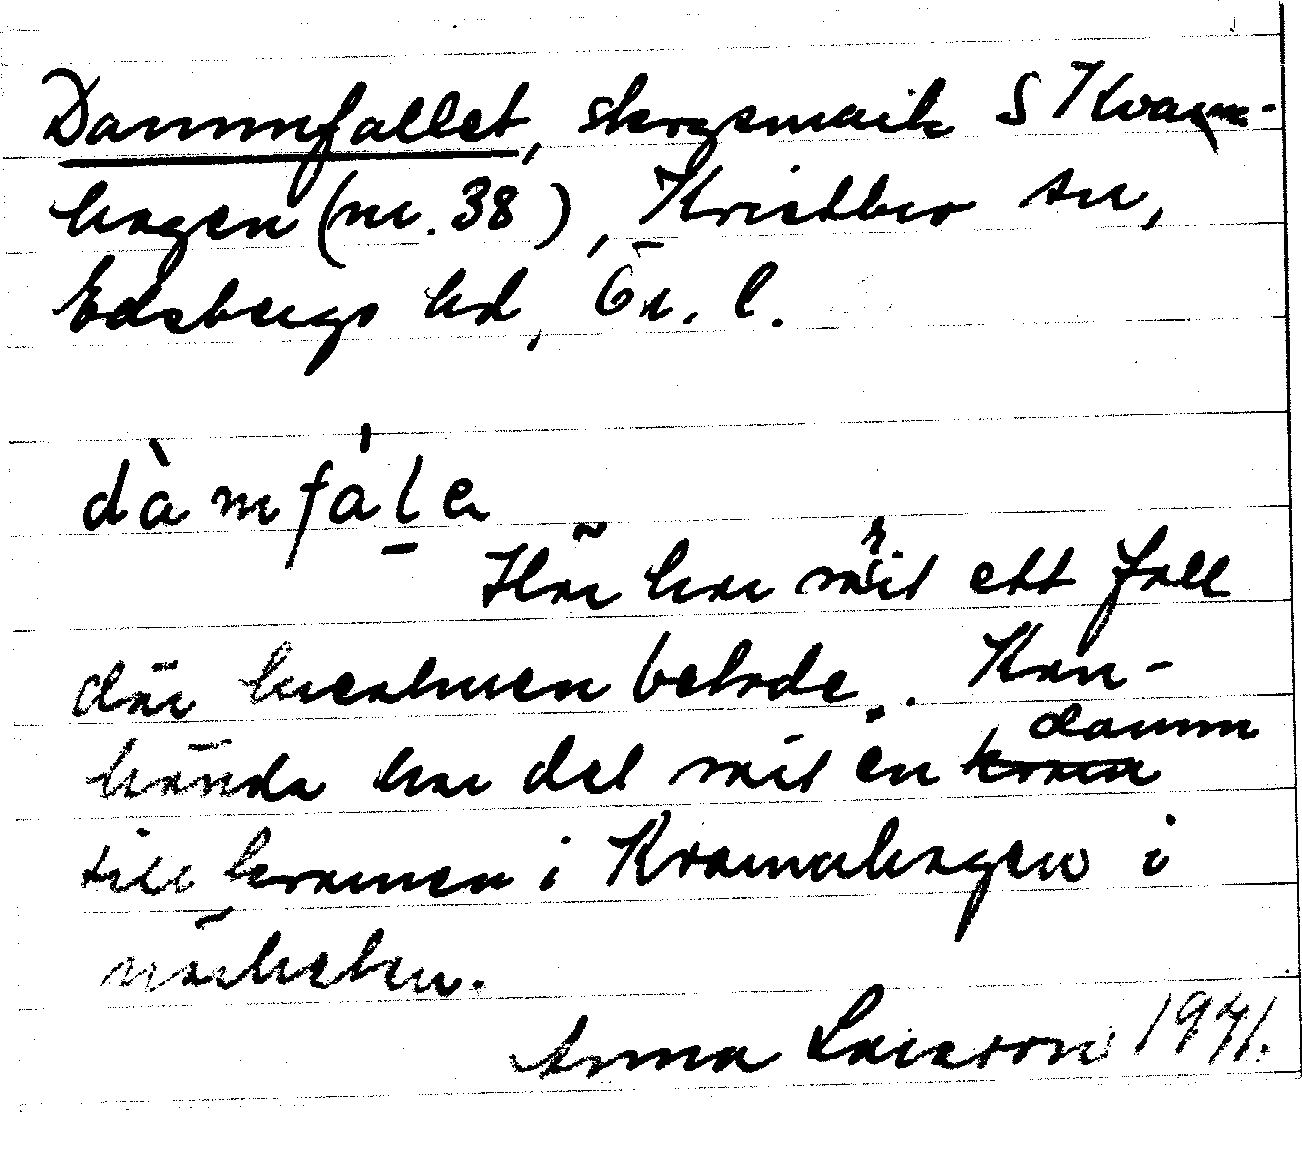 Dammfallet, skogsmark S Kvarn-
hagen (nr. 38), Knistbro sn,
Edsbergs hd, Ör. l.
dàmfálɐ
Här har varit ett fall
där kreaturen betade. Kan-
hända har det varit en damm
till kvarnen i Kvarnahagen i
närheten.
Anna Larsson 1971.